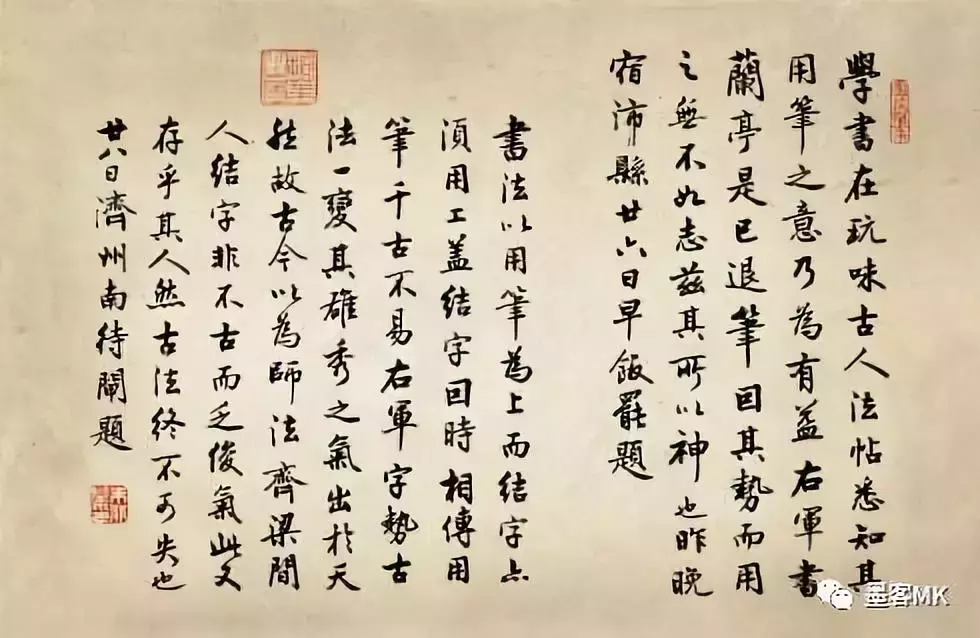 學書在玩味古人法帖悉知其
用筆之意乃為有益右軍書
蘭亭是已退筆因其勢而用
之無不如志茲其所以神也昨晚
宿沛縣廿六日早飯罷題
書法以用筆為上而結字亦
須用工盖結字因時相傳用
筆千古不易右軍字勢古
法一變其雄秀之氣出於天
然故古今以為師法齊梁間
人結字非不古而乏俊氣此又
存乎其人然古法終不可失也
廿八日濟州南待閘題
墨客MK